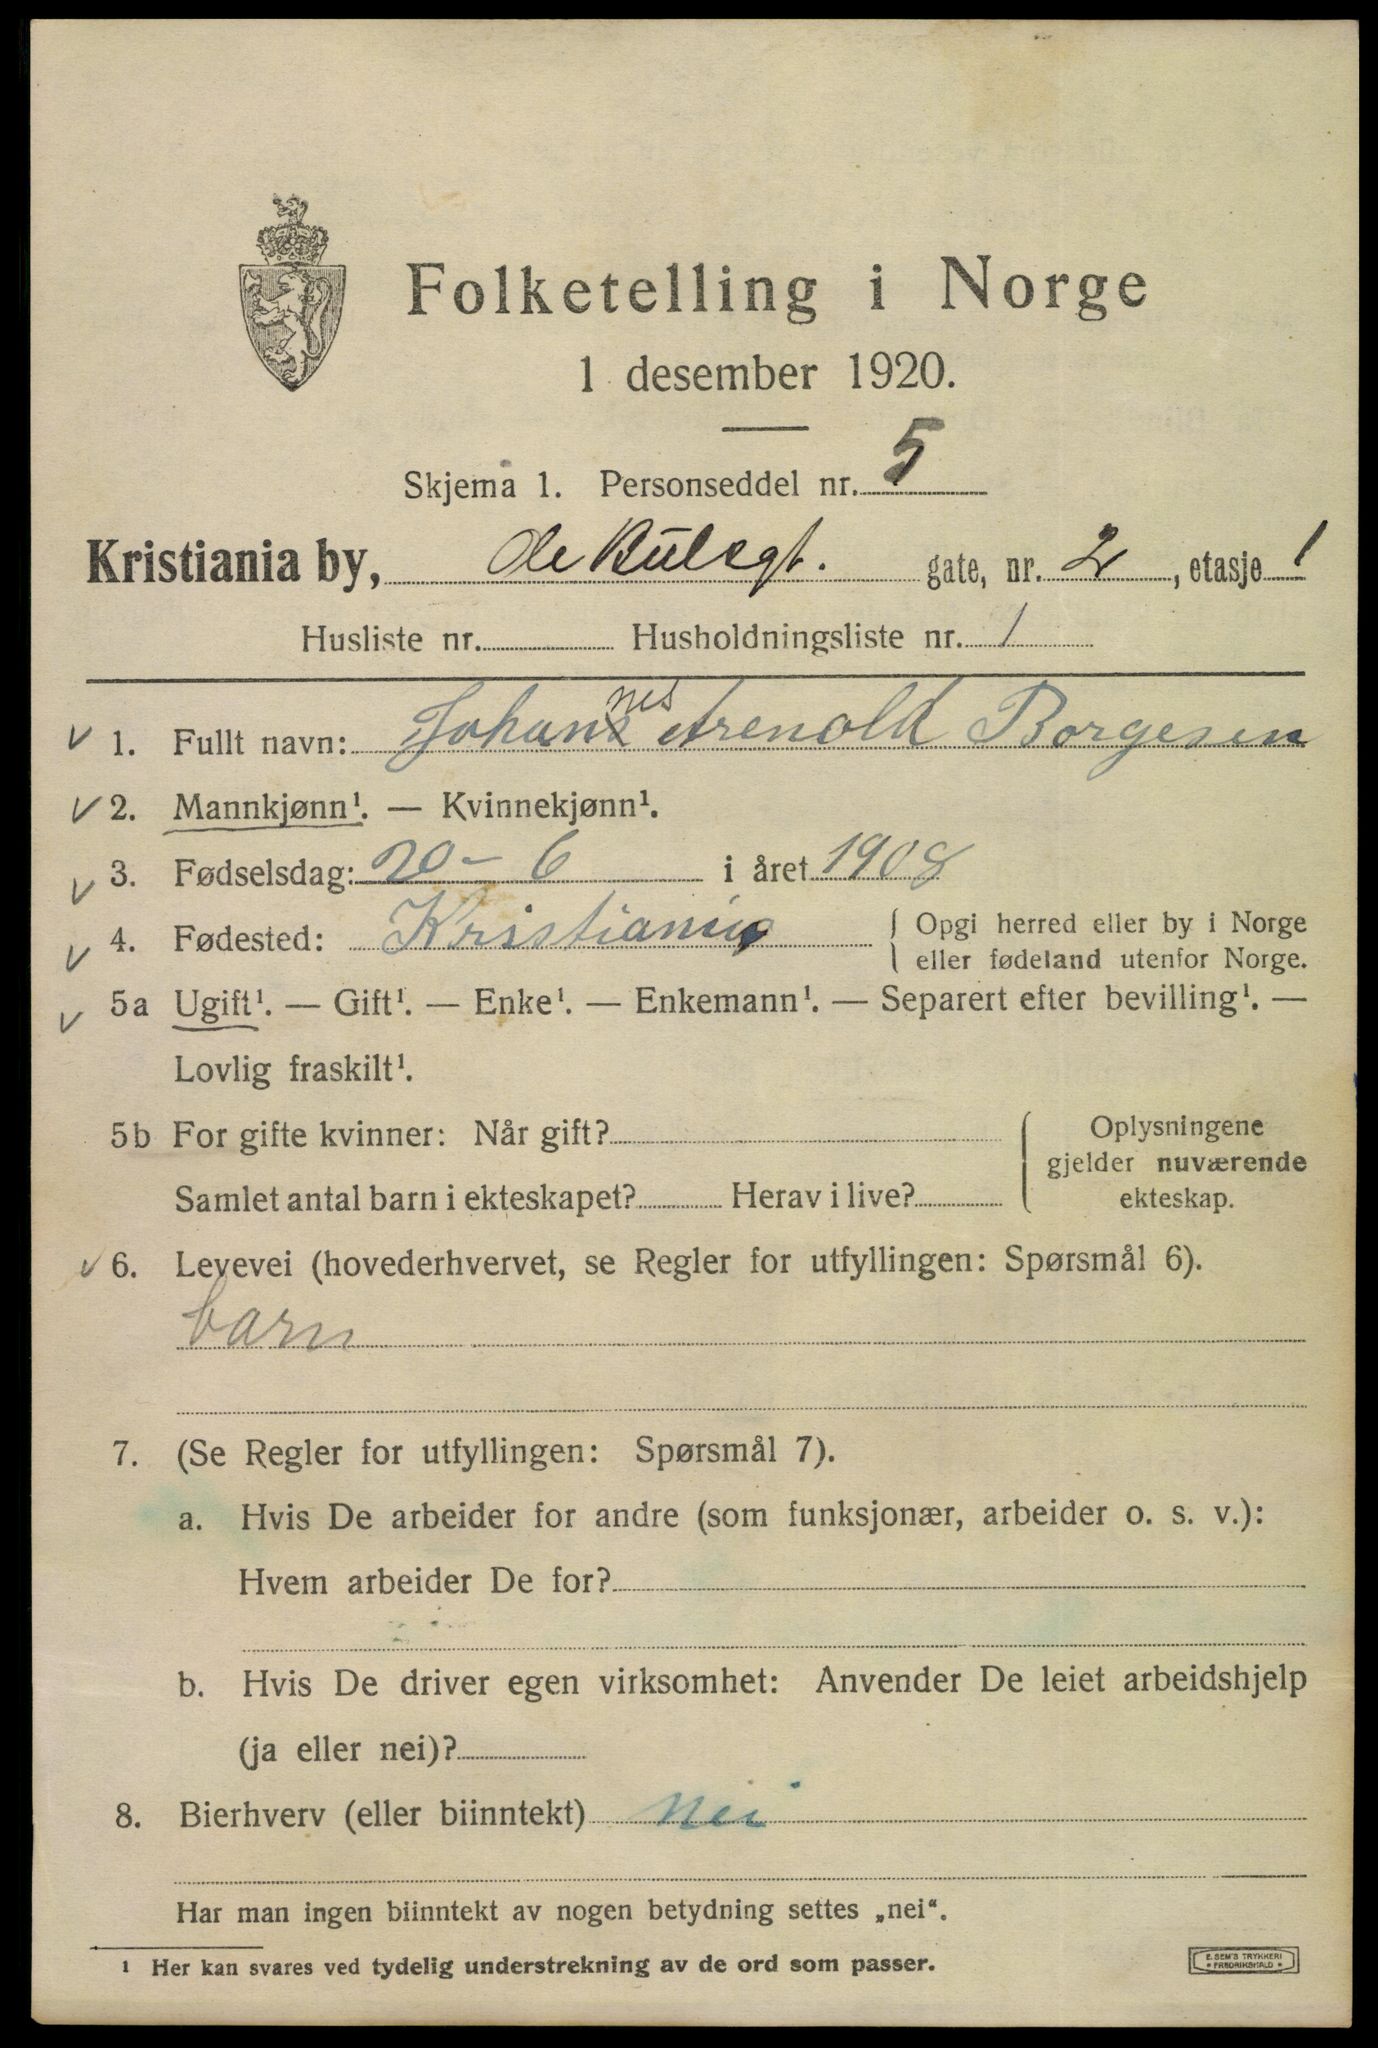 Folketelling i Norge
1 desember 1920.
Skjema 1. Personseddel nr. 5
Kristiania by, de Bulsgt. gate, nr. 2, etasje 1
Husliste nr. Husholdningsliste nr. 1
1. Fullt navn: Johannes Arenold Borgesen
2. Mannkjønn¹. — Kvinnekjønn¹.
3. Fødselsdag: 20-6 i året 1908
4. Fødested: Kristiania { Opgi herred eller by i Norge
eller fødeland utenfor Norge.
5a Ugift¹. — Gift¹. — Enke¹. — Enkemann¹. — Separert efter bevilling¹. —
Lovlig fraskilt¹.
5b For gifte kvinner: Når gift? { Oplysningene
gjelder nuværende
Samlet antal barn i ekteskapet? Herav i live? ekteskap.
6. Levevei (hovederhvervet, se Regler for utfyllingen: Spørsmål 6).
barn
7. (Se Regler for utfyllingen: Spørsmål 7).
a. Hvis De arbeider for andre (som funksjonær, arbeider o. s. v.):
Hvem arbeider De for?
b. Hvis De driver egen virksomhet: Anvender De leiet arbeidshjelp
(ja eller nei)?
8. Bierhverv (eller biinntekt) Nei
Har man ingen biinntekt av nogen betydning settes „nei“.
¹ Her kan svares ved tydelig understrekning av de ord som passer.
E. SEM'S TRYKKERI
* FREDRIKSHALD *